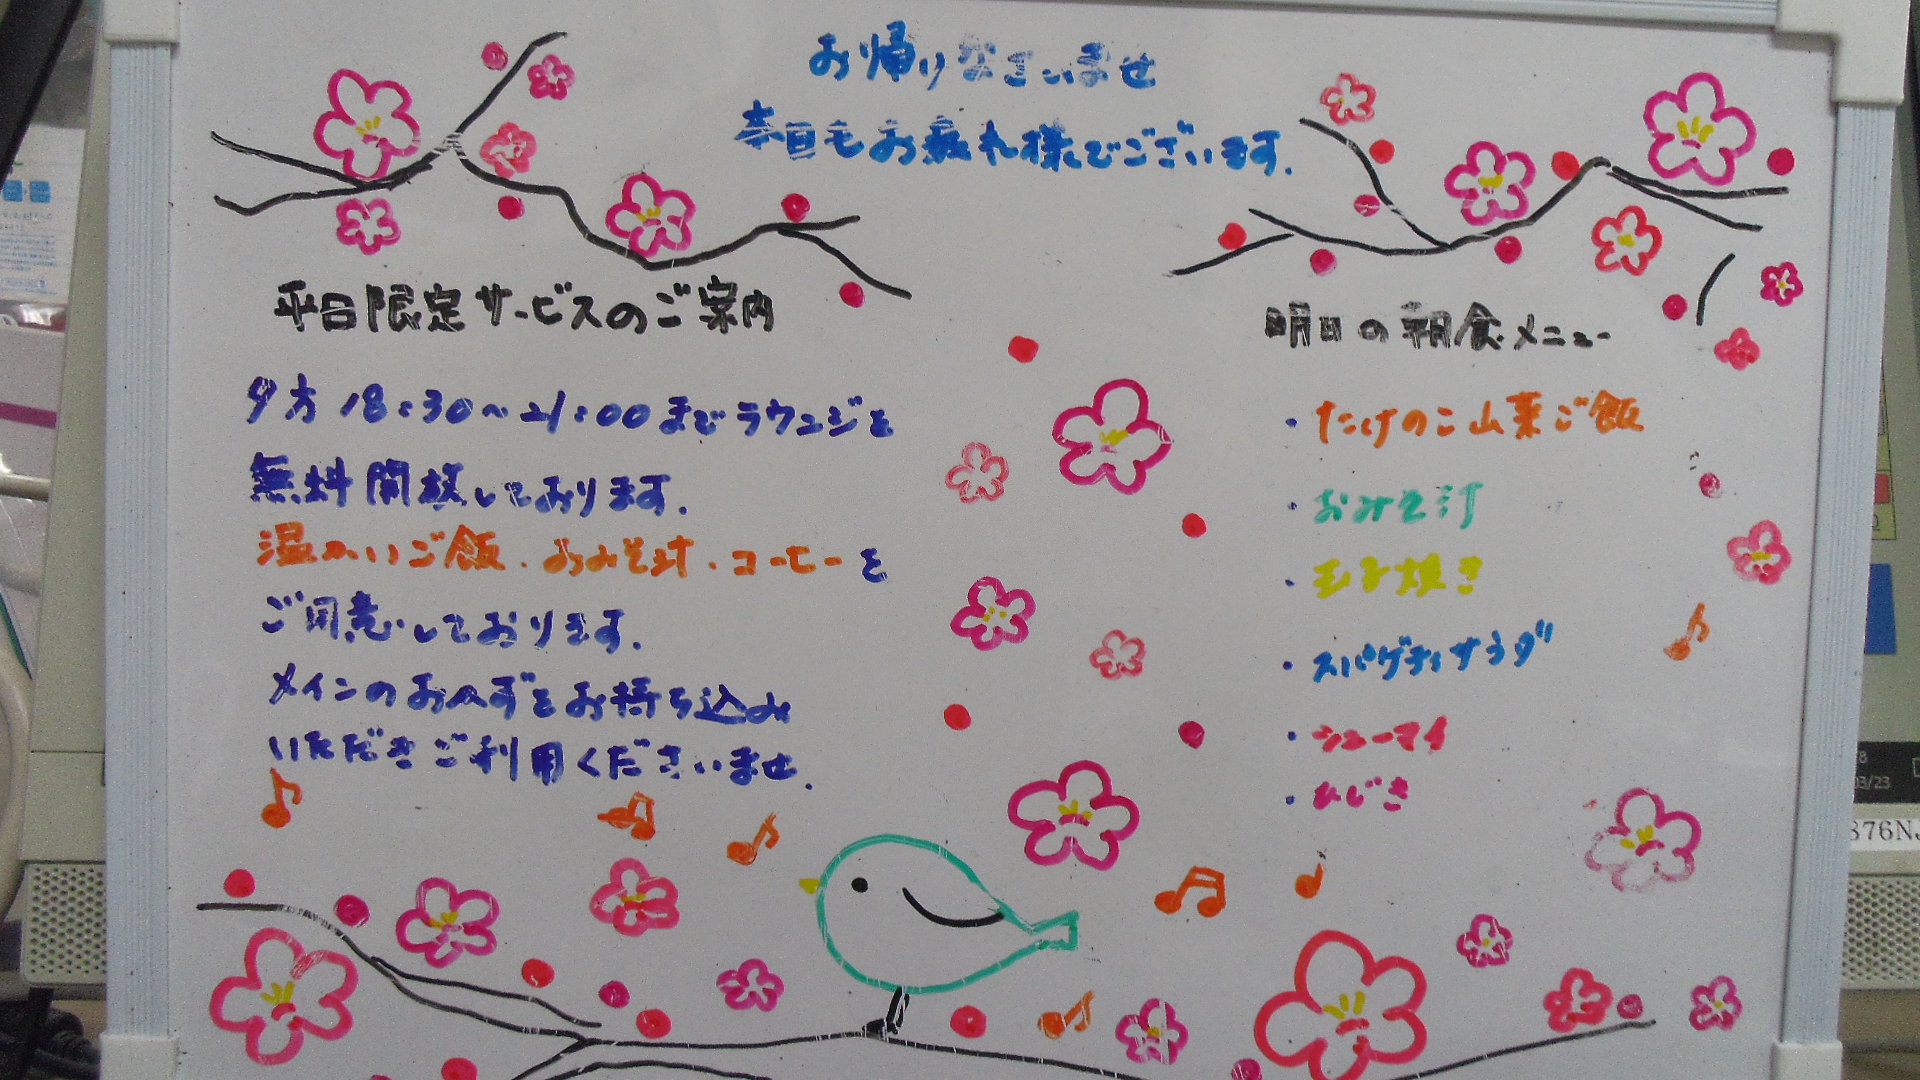 お帰りなさいませ
本日もお疲れ様でございます.
平日限定サービスのご案内
夕方18:30〜21:00までラウンジを
無料開放しております.
温かいご飯.おみそ汁.コーヒーを
ご用意しております.
メインのおかずをお持ち込み
いただきご利用くださいませ.
明日の朝食メニュー
・たけのこ山菜ご飯
・おみそ汁
・玉子焼き
・スパゲティサラダ
・シューマイ
・ひじき
03/23
876NJ